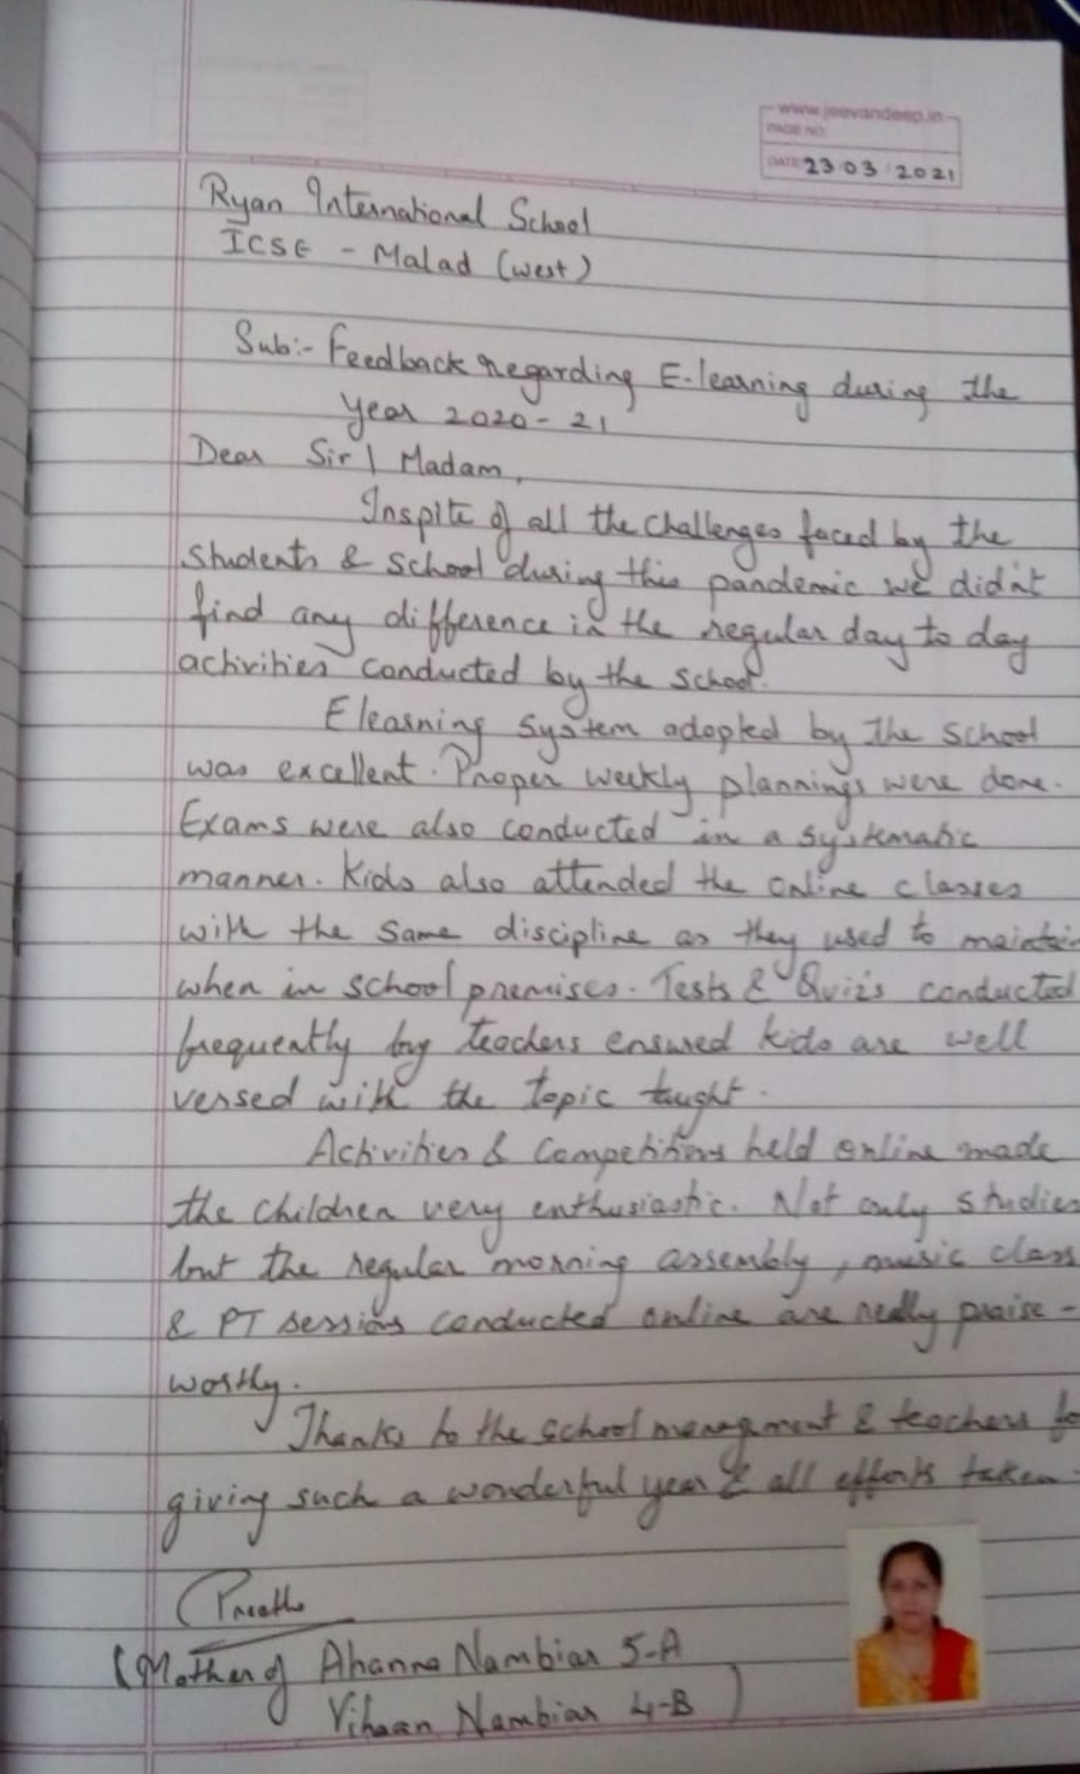 www.jeevandeep.in
PAGE NO.
DATE 23 03 2021
Ryan International School
ICSE - Malad (west)
Sub:- Feedback regarding E-learning during the
year 2020-21
Dear Sir | Madam,
Inspite of all the challenges faced by the
students & school during this pandemic we didn't
find any difference in the regular day to day
activities conducted by the school.
Elearning system adopted by the school
was excellent. Proper weekly plannings were done.
Exams were also conducted in a systematic
manner. Kids also attended the online classes
with the same discipline as they used to maintain
when in school premises. Tests & Quiz's conducted
frequently by teachers ensured kids are well
versed with the topic taught.
Activities & Competitions held online made
the children very enthusiastic. Not only studies
but the regular morning assembly, music class
& PT sessions conducted online are really praise-
worthy.
Thanks to the school managment & teachers fo
giving such a wonderful year & all efforts taken.
Preetha
(Mother of Ahanna Nambiar 5-A
Vihaan Nambiar 4-B )